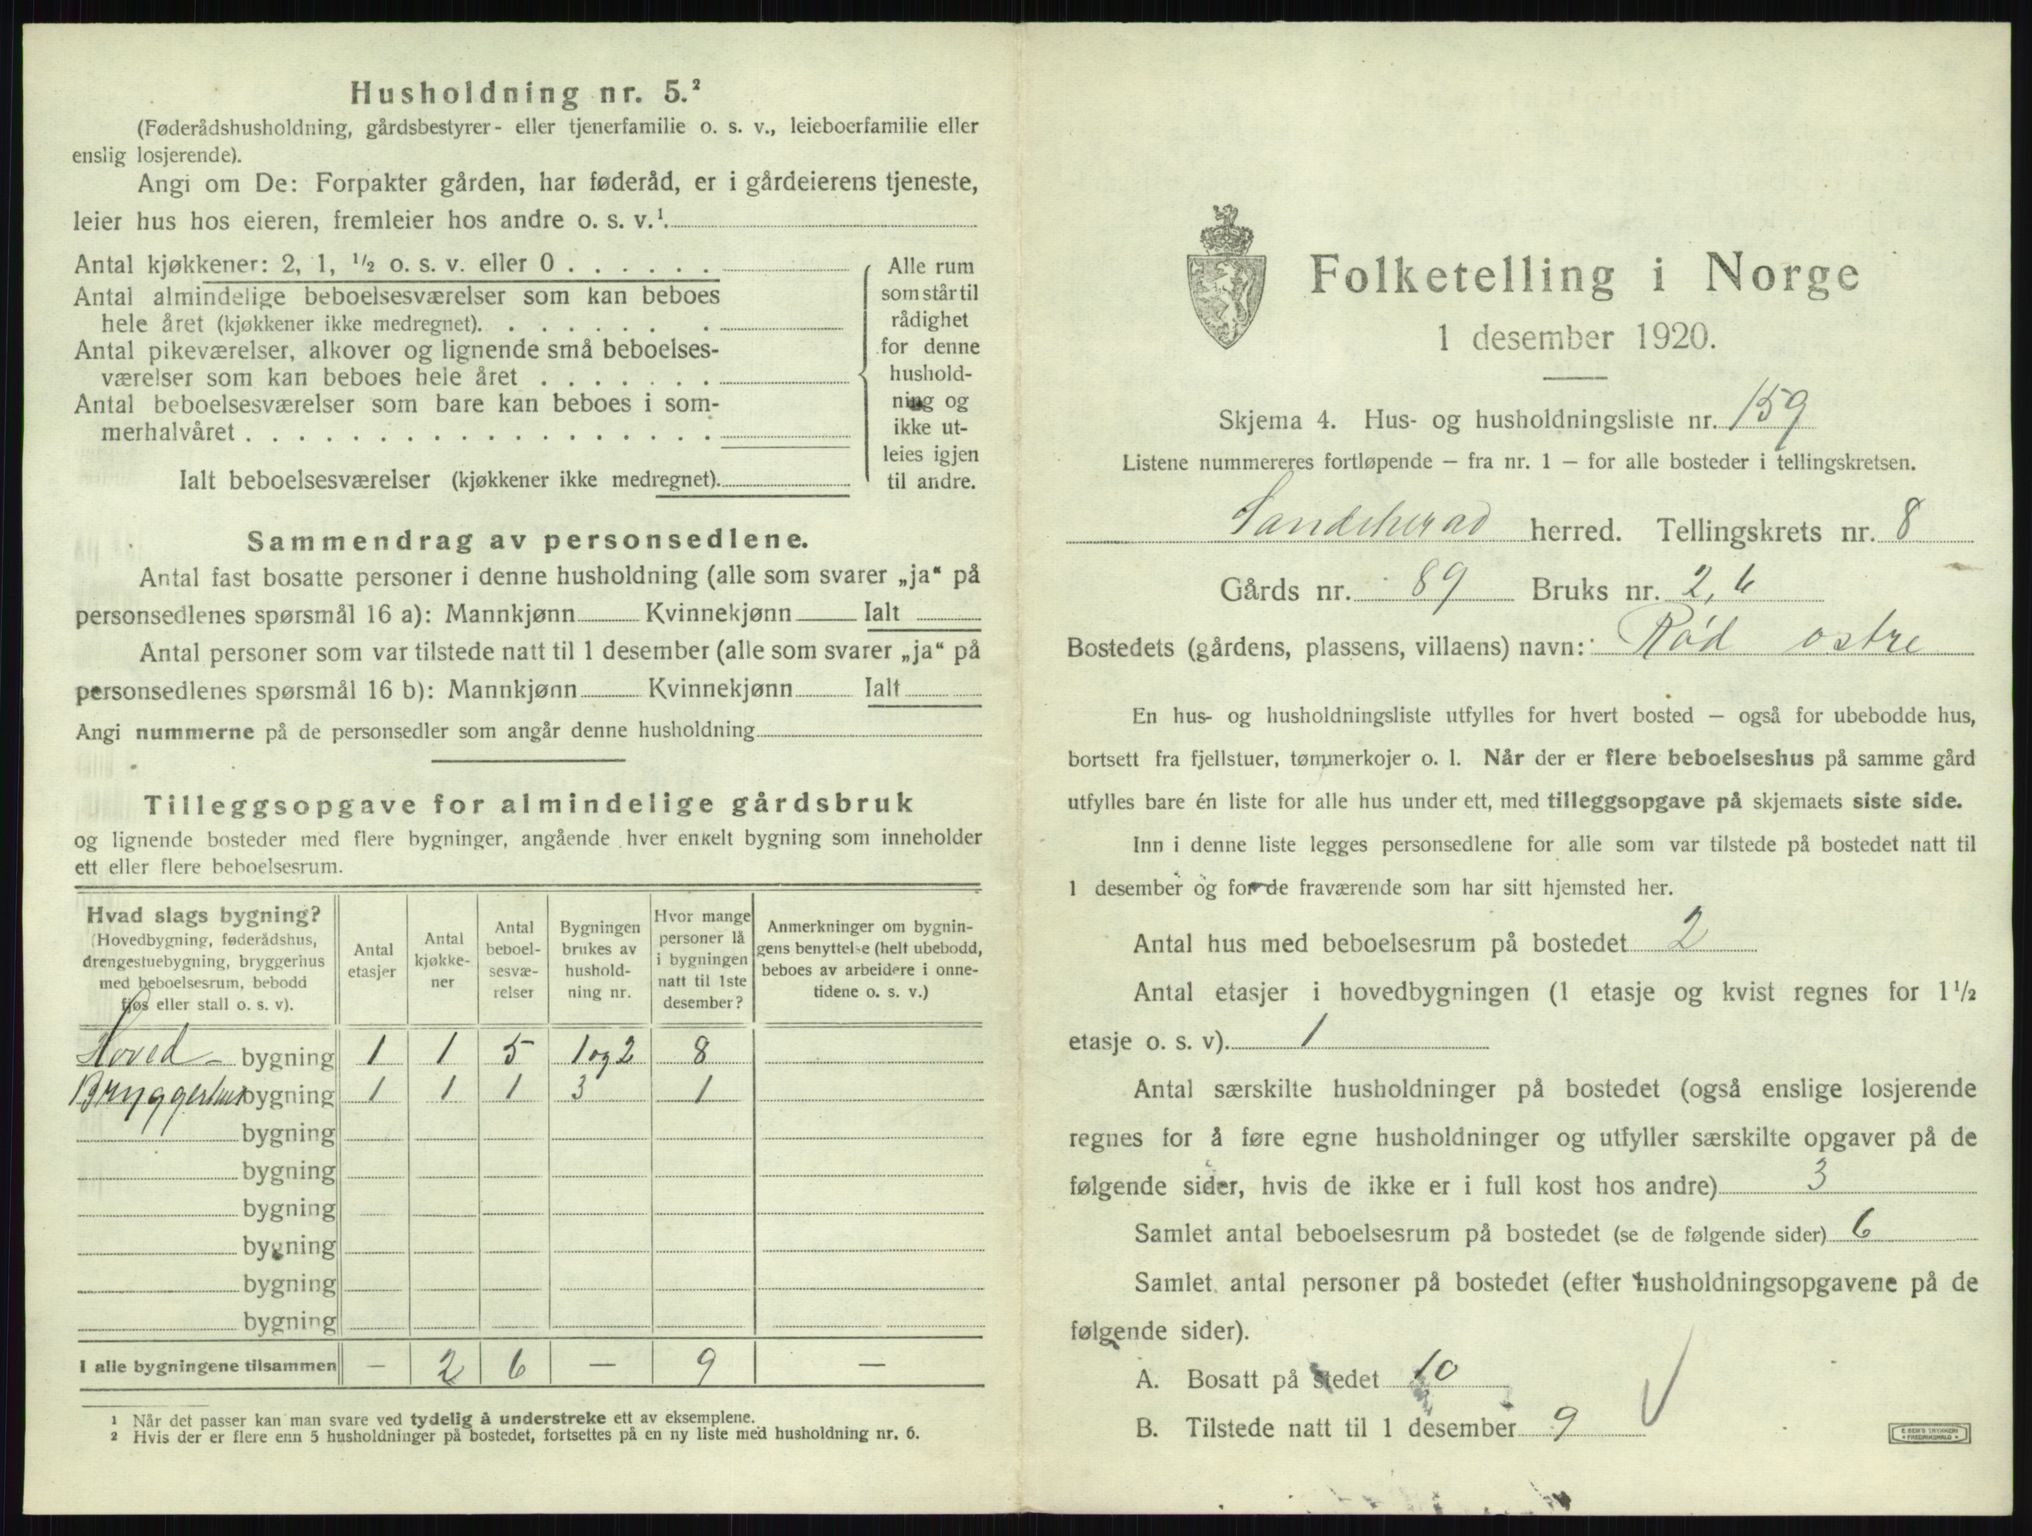 Husholdning nr. 5.²
(Føderådshusholdning, gårdsbestyrer- eller tjenerfamilie o. s. v., leieboerfamilie eller
enslig losjerende).
Angi om De: Forpakter gården, har føderåd, er i gårdeierens tjeneste,
leier hus hos eieren, fremleier hos andre o. s. v.¹.
Antal kjøkkener: 2, 1, ½ o. s. v. eller 0 . . . . . .
Antal almindelige beboelsesværelser som kan beboes
hele året (kjøkkener ikke medregnet). . . . . . . .
Antal pikeværelser, alkover og lignende små beboelses-
værelser som kan beboes hele året . . . . . . .
Antal beboelsesværelser som bare kan beboes i som-
merhalvåret . . . . . . . . . . . . . . . . . .
Ialt beboelsesværelser (kjøkkener ikke medregnet).
Alle rum
som står til
rådighet
for denne
hushold-
ning og
ikke ut-
leies igjen
til andre.
Sammendrag av personsedlene.
Antal fast bosatte personer i denne husholdning (alle som svarer „ja“ på
personsedlenes spørsmål 16 a): Mannkjønn Kvinnekjønn Ialt
Antal personer som var tilstede natt til 1 desember (alle som svarer „ja“ på
personsedlenes spørsmål 16 b): Mannkjønn Kvinnekjønn Ialt
Angi nummerne på de personsedler som angår denne husholdning
Tilleggsopgave for almindelige gårdsbruk
og lignende bosteder med flere bygninger, angående hver enkelt bygning som inneholder
ett eller flere beboelsesrum.
Hvad slags bygning?
(Hovedbygning, føderådshus,
drengestuebygning, bryggerhus
med beboelsesrum, bebodd
fjøs eller stall o. s. v).
Antal
etasjer
Antal
kjøkke-
ner
Antal
beboel-
sesvæ-
relser
Bygningen
brukes av
hushold-
ning nr.
Hvor mange
personer lå
i bygningen
natt til 1ste
desember?
Anmerkninger om bygnin-
gens benyttelse (helt ubebodd,
beboes av arbeidere i onne-
tidene o. s. v.)
Hoved- bygning 1 1 5 1 og 2 8
Bryggerhus bygning 1 1 1 3 1
bygning
bygning
bygning
bygning
bygning
bygning
I alle bygningene tilsammen — 2 6 — 9 —
¹ Når det passer kan man svare ved tydelig å understreke ett av eksemplene.
² Hvis der er flere enn 5 husholdninger på bostedet, fortsettes på en ny liste med husholdning nr. 6.
Folketelling i Norge
1 desember 1920.
Skjema 4. Hus- og husholdningsliste nr. 159
Listene nummereres fortløpende — fra nr. 1 — for alle bosteder i tellingskretsen.
Sandeherad herred. Tellingskrets nr. 8
Gårds nr. 89 Bruks nr. 2, 6
Bostedets (gårdens, plassens, villaens) navn: Rød østre
En hus- og husholdningsliste utfylles for hvert bosted — også for ubebodde hus,
bortsett fra fjellstuer, tømmerkojer o. l. Når der er flere beboelseshus på samme gård
utfylles bare én liste for alle hus under ett, med tilleggsopgave på skjemaets siste side.
Inn i denne liste legges personsedlene for alle som var tilstede på bostedet natt til
1 desember og for de fraværende som har sitt hjemsted her.
Antal hus med beboelsesrum på bostedet 2
Antal etasjer i hovedbygningen (1 etasje og kvist regnes for 1½
etasje o. s. v). 1
Antal særskilte husholdninger på bostedet (også enslige losjerende
regnes for å føre egne husholdninger og utfyller særskilte opgaver på de
følgende sider, hvis de ikke er i full kost hos andre) 3
Samlet antal beboelsesrum på bostedet (se de følgende sider) 6
Samlet antal personer på bostedet (efter husholdningsopgavene på de
følgende sider).
A. Bosatt på stedet 10
B. Tilstede natt til 1 desember 9
E. SEM'S TRYKKERI
FREDRIKSHALD